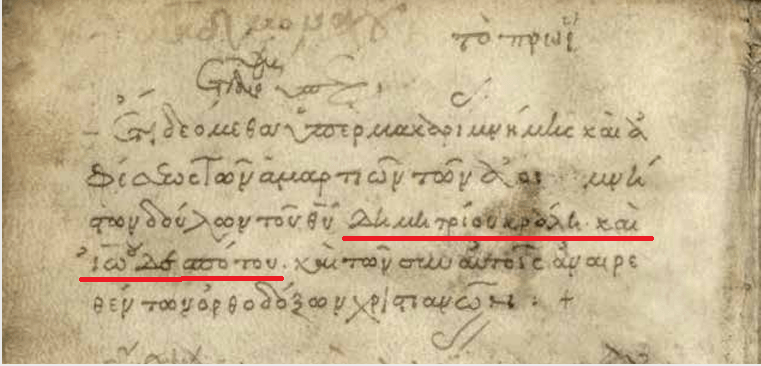 τὸ πρωῒ
Ἔτι δεόμεθα ὑπὲρ μακαρί μνήμης καὶ ἀ
φέσεως τῶν ἁμαρτιῶν τῶν ἀοι μνή
των δούλων τοῦ θῦ Δημητρίου κράλη. καὶ
ἰωῦ δεσπότου. καὶ τῶν σὺν αὐτοῖς ἀναιρε
θέντων ὀρθοδόξων χριστιανῶν : +